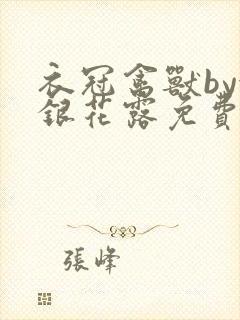 衣冠禽獸by
銀花露免費
張峰